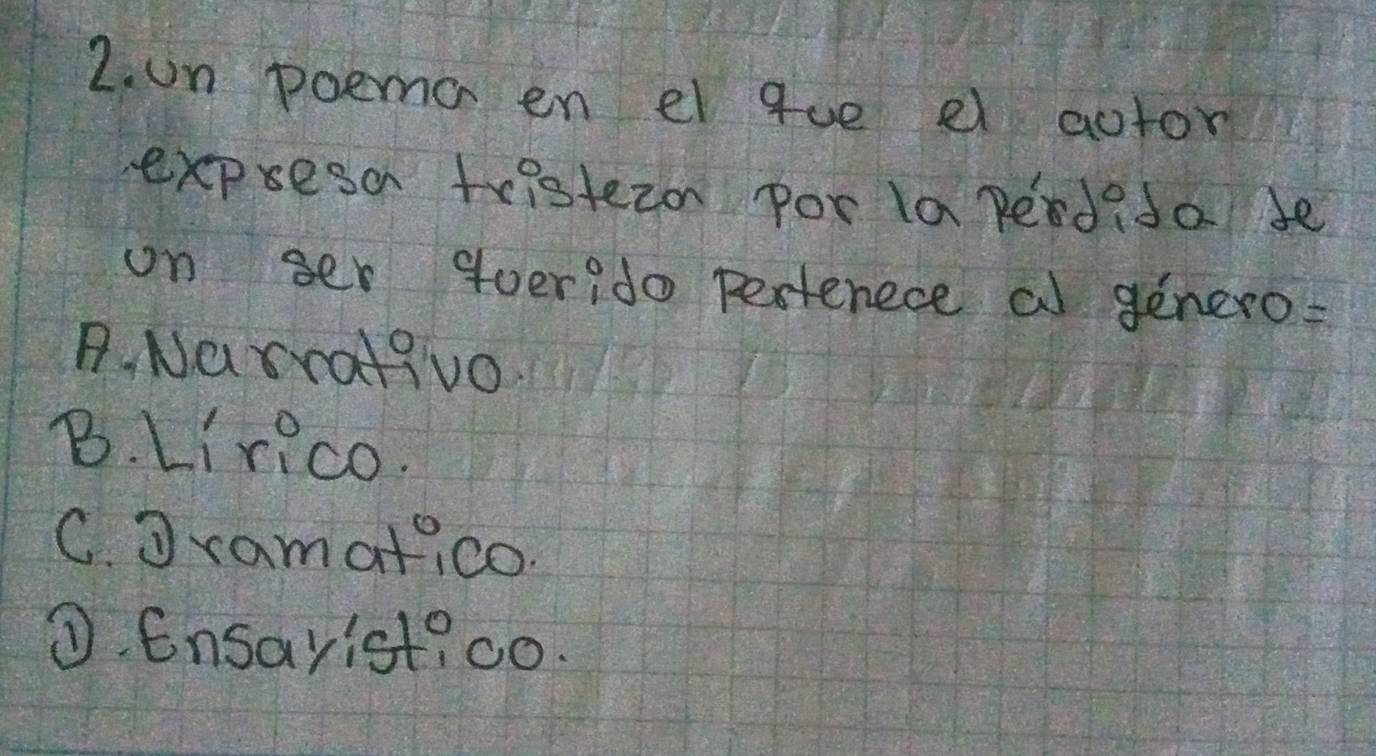 2. un poema en el que el autor
expresa tristeza por la pérdida de
un ser querido pertenece al género=
A. Narrativo.
B. Lírico.
C. Dramatico.
D. Ensayístico.